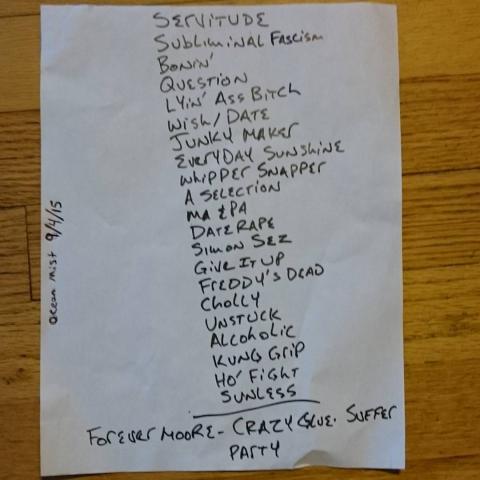 SERVITUDE
SUBLIMINAL FASCISM
BONIN'
QUESTION
LYIN' ASS BITCH
WISH/DATE
JUNKY MAKER
EVERYDAY SUNSHINE
WHIPPER SNAPPER
A SELECTION
MA & PA
DATE RAPE
SIMON SEZ
GIVE IT UP
FREDDY'S DEAD
CHOLLY
UNSTUCK
ALCOHOLIC
KUNG GRIP
HO' FIGHT
SUNLESS
FOREVER MOORE- CRAZY GLUE. SUFFER
PARTY
Ocean Mist 9/4/15